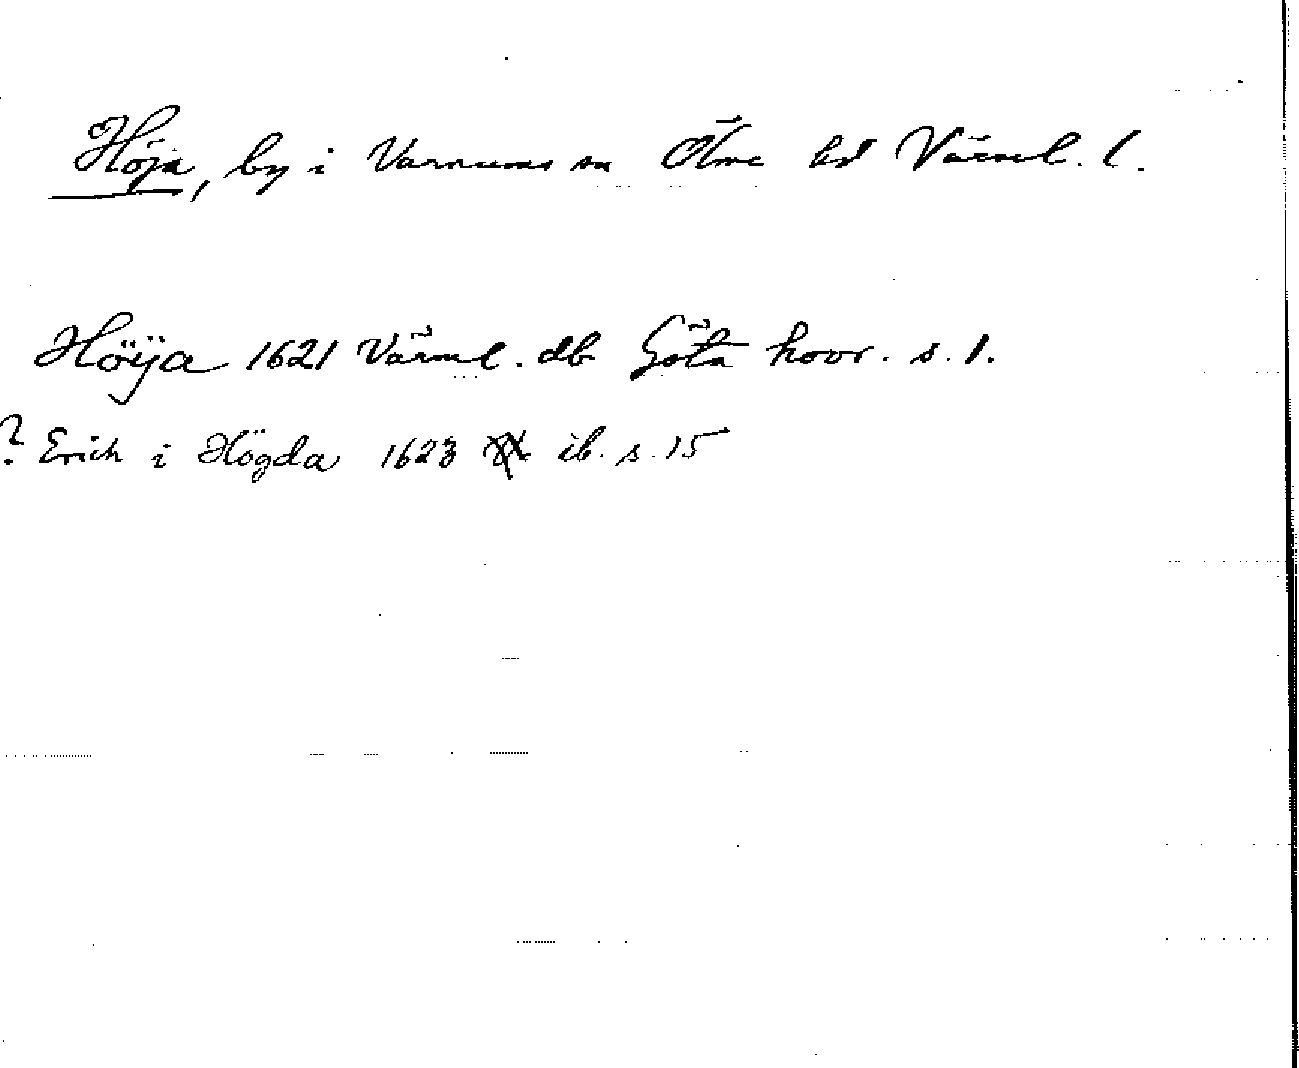 Höja, by i Varnums sn Ölme hd Värml. l.
Höÿa 1621 Värml. db Göta hovr. s. 1.
? Erich i Högda 1623 ib. s. 15